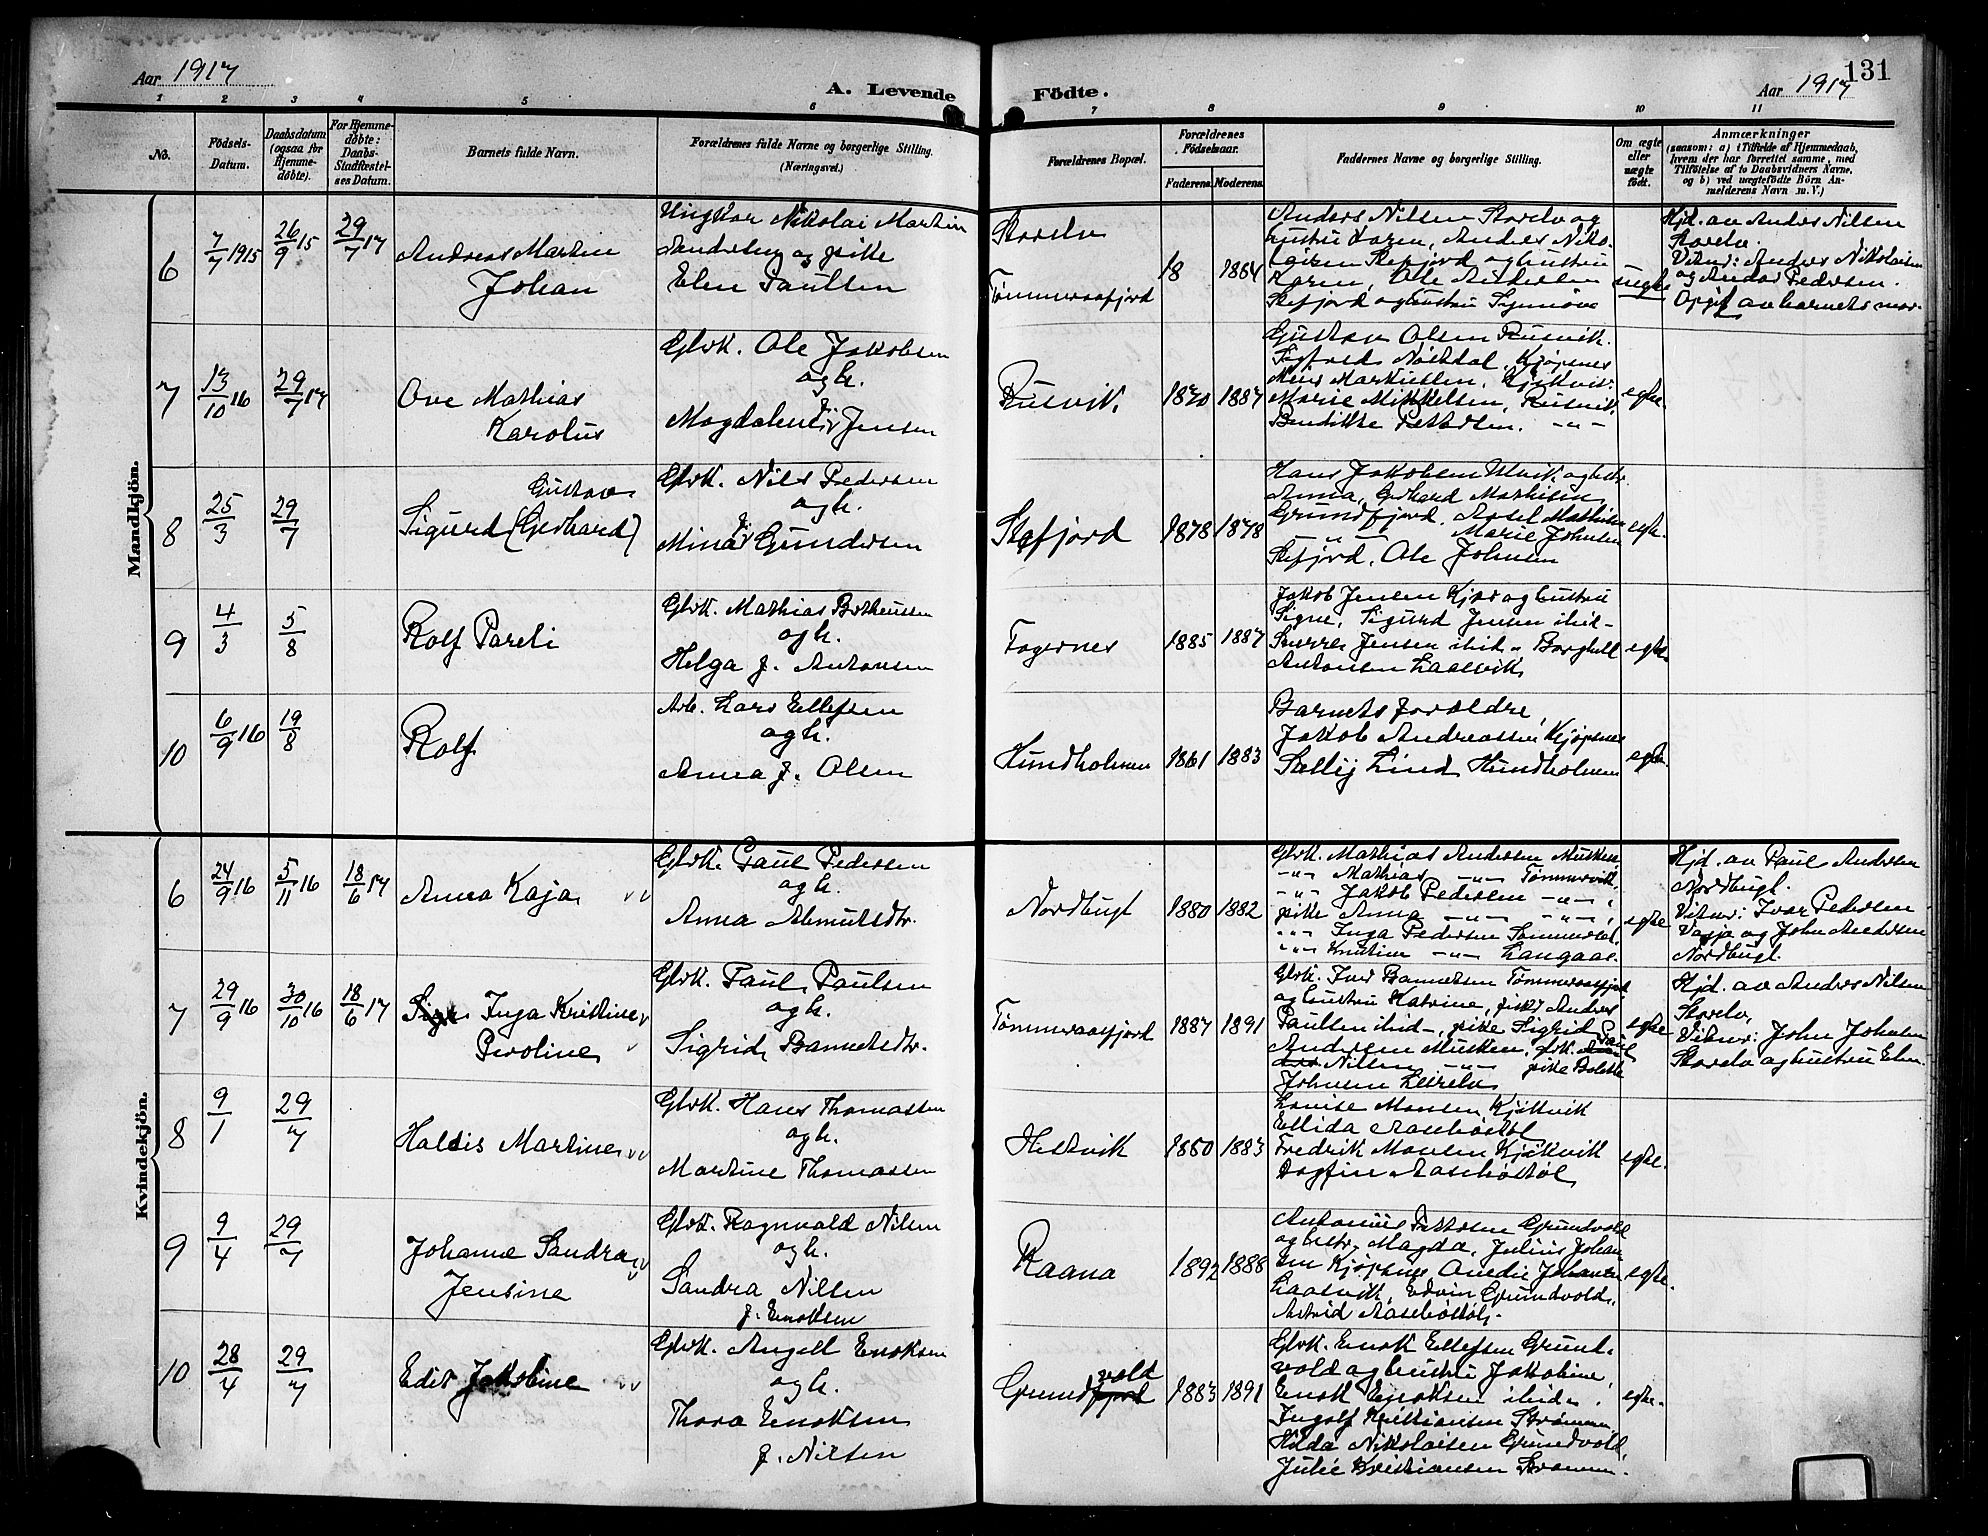 Aar 1917
A. Levende Födte.
Aar 1917
131
1 2 3 4 5 6 7 8 9 10 11
No.
Födsels-Datum.
Daabsdatum (ogsaa for Hjemmedöbte).
For Hjemmedöbte: Daabs-Stadfæstelses Datum.
Barnets fulde Navn.
Forældrenes fulde Navne og borgerlige Stilling. (Næringsvei.)
Forældrenes Bopæl.
Forældrenes Födselsaar.
Faderens. Moderens.
Faddernes Navne og borgerlige Stilling.
Om ægte eller uægte födt.
Anmærkninger
(saasom: a) i Tilfælde af Hjemmedaab, hvem der har forrettet samme, med Tilföielse af to Daabsvidners Navne, og b) ved uægtefödte Börn Anmelderens Navn m. V.)
Mandkjön.
6
7/7 1915
26/9 15
29/7 17
Andreas Martin
Johan
Ungkar Nikolai Martin
Sandberg og pike
Elen Paulsen
Storelv
Tømmeraasfjord
18
1864
Anders Nilsen Storelv og
hustru Karen, Anders Niko-
laisen Stefjord og hustru
Karen, Ole Andersen
Stefjord og hustru
uegte
Hjd. av Anders Nilsen
Storelv.
Vitner: Anders Nikolaisen
og Andor Pedersen.
Opgit av barnets mor.
7
13/10 16
29/7 17
Ove Mathias
Karolus
Gbrk. Ole Jakobsen
og h.
Magdalena f. Jensen
Rusvik
1870
1887
Gustav Olsen Rusvik.
Sigfred Nøstdal, Kjøpsnes
Marie Mikkelsen, Rusvik,
Bendikte Pedersen. -"-
egte.
8
25/3
29/7
Gustav
Sigurd (Gerhard)
Gbrk. Nils Pedersen
og h.
Mina f. Gundersen
Stefjord
1878
1878
Hans Jakobsen Ulvik og hustr.
Anna, Gerhard Mathisen
Grundfjord, Aksel Mathisen
-"- Marie Johnsen
Stefjord, Ole Johnsen
egte.
9
4/3
5/8
Rolf Pareli
Gbrk. Mathias Bertheussen
og h.
Helga f. Antonsen
Fagernes
1885
1887
Jakob Jensen Kjær og hustru
Signe, Sigurd Jensen ibid-
Sverre Jensen ibid - Borghild
Antonsen Laasvik
egte
10
6/9 16
19/8
Rolf
Arb. Lars Ellefsen
og h.
Anna f. Olsen
Hundholmen
1861
1883
Barnets forældre,
Jakob Andreassen Kjøpsnes
Lind Hundholmen
egte.
Kvindekjön.
6
24/9 16
5/11 16
18/6 17
Anna Kaja
Gbrk. Paul Pedersen
og h.
Anna Asmundsdtr.
Nordbugt
1880
1882
Gbrk. Mathias Andersen Musken
-"- Mathias -"- Tømmervik,
-"- Jakob Pedersen -"-,
pike Anna -"- -"-,
-"- Inga Pedersen Sommerset,
-"- Kristine -"- Langaas.
egte
Hjd. av Paul Andersen
Nordbugt.
Vitner: Ivar Pedersen
og John Andersen
Nordbugt.
7
29/9 16
30/10 16
18/6 17
Inga Kristine
Peroline
Gbrk. Paul Paulsen
og h.
Sigrid Bannetsdtr.
Tømmeraasfjord
1887
1891
Gbrk. Ivar Bannetsen Tømmeraasfjord
og hustru Katrine, fisk. Anders
Paulsen ibid-, pike Sigrid
Andersen Musken, gbk. Paul
Nilsen -"- pike Bolette
Johnsen Leirelv
egte
Hjd. av Anders Nilsen
Storelv,
Vitner: John Johnsen
Storelv og hustru Elen.
8
9/1
29/7
Haldis Martine
Gbrk. Hans Thomassen
og h.
Martine Thomassen
Hestvik
1880
1883
Lovise Monsen Kjikvik
Ellida Aasebøstøl
Fredrik Monsen Kjikvik
Dagfin Aasebøstøl
egte.
9
9/4
29/7
Johanne Sandra
Jensine
Gbrk. Ragnvald Nilsen
og h.
Sandra Nilsen
f. Enoksen
Raana
1892
1888
Antonius Pedersen Grundvold
og hustr. Magda, Julius Johan-
sen Kjøpsnes Amelie Johansen
Laasvik, Edvin Grundvold,
Astrid Aasebøstøl.
egte.
10
28/4
29/7
Edit Jakobine
Gbrk. Angell Enoksen
og h.
Thora Enoksen
f. Nilsen
vold
Grundfjord
1883
1891
Gbrk. Enok Ellefsen Grund-
vold og hustru Jakobine,
Enok Enoksen ibid-,
Ingolf Kristiansen Strømmen
Hilda Nikolaisen Grundvold,
Julie Kristiansen Strømmen.
egte.